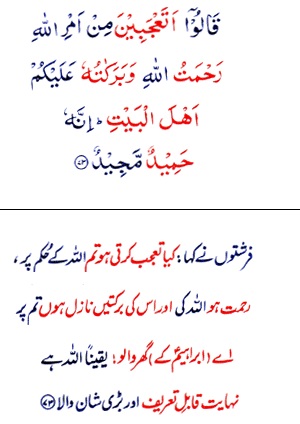 قَالُوْۤا اَتَعْجَبِيْنَ مِنْ اَمْرِ اللّٰهِ
رَحْمَتُ اللّٰهِ وَبَرَكٰتُهٗ عَلَيْكُمْ
اَهْلَ الْبَيْتِ ؕ اِنَّهٗ
حَمِيْدٌ مَّجِيْدٌ ﴿۷۳﴾
فرشتوں نے کہا: کیا تعجب کرتی ہو تم اللہ کے حُکم پر،
رحمت ہو اللہ کی اور اس کی برکتیں نازل ہوں تم پر
اے (ابراہیمؑ کے) گھر والو؛ یقیناً اللہ ہے
نہایت قابلِ تعریف اور بڑی شان والا ﴿۷۳﴾